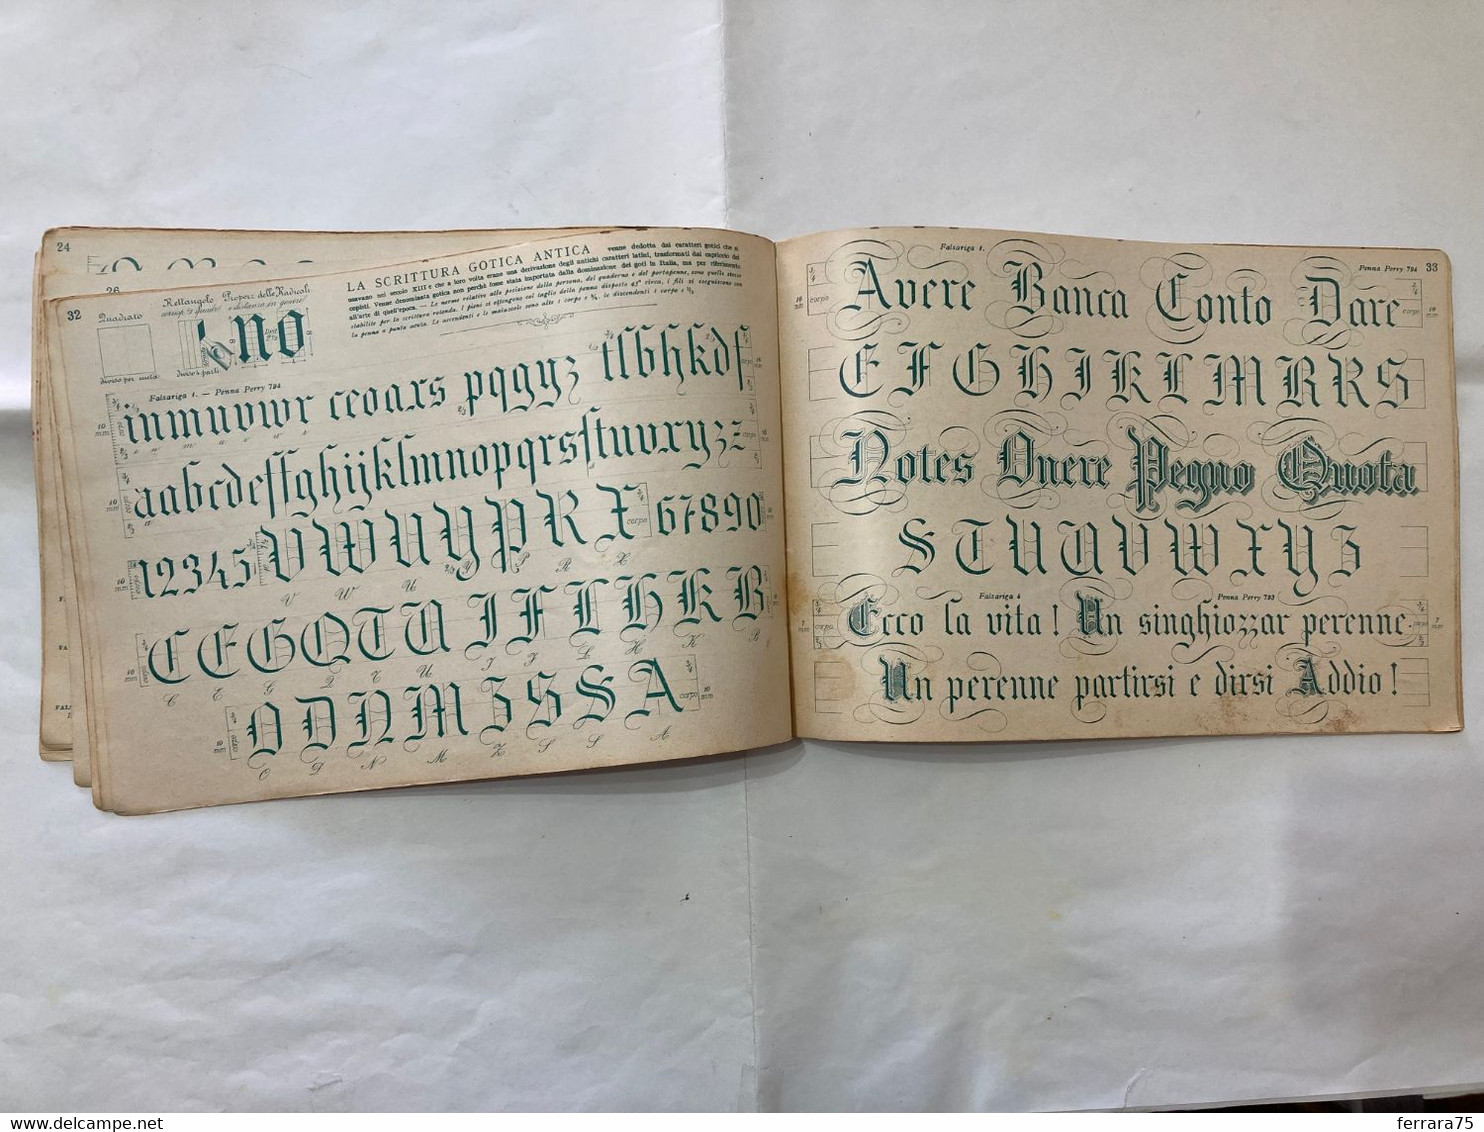 24
26
32
Quadrato
Rettangolo
Properz. delle Radicali
diviso per metà
diviso 4 parti
no
LA SCRITTURA GOTICA ANTICA venne dedotta dai caratteri gotici che si
usavano nel secolo XIII e che a loro volta erano una derivazione degli antichi caratteri latini, trasformati dal capriccio dei
copisti. Venne denominata gotica non perchè fosse stata importata dalla dominazione dei goti in Italia, ma per riferimento
all'arte di quell'epoca. — Le norme relative alla posizione della persona, del quaderno e del portapenna, sono quelle stesse
stabilite per la scrittura rotonda. I pieni si ottengono col taglio della penna disposto 45° circa, i fili si eseguiscono con
la penna a punta acuta. Le ascendenti e le maiuscole sono alte 1 corpo e ¾, le discendenti 1 corpo e ⅔.
Falsariga 1. — Penna Perry 794
inmuvwr ceoaxs pqgyz tlbhkdf
aabcdeffghijklmnopqrsſtuvxyzz
12345 VWUYPRX 67890
V W U Y P R X
CEGQTUIFLHKB
C E G Q T U I F L H K B
ODNMZSSA
O D N M Z S S A
Falsariga 1.
Penna Perry 794
33
Avere Banca Conto Dare
EFGHIKLMRRS
Notes Onere Pegno Quota
STUUVWXYZ
Falsariga 4
Penna Perry 793
Ecco la vita! Un singhiozzar perenne.
Un perenne partirsi e dirsi Addio!
ferrara75